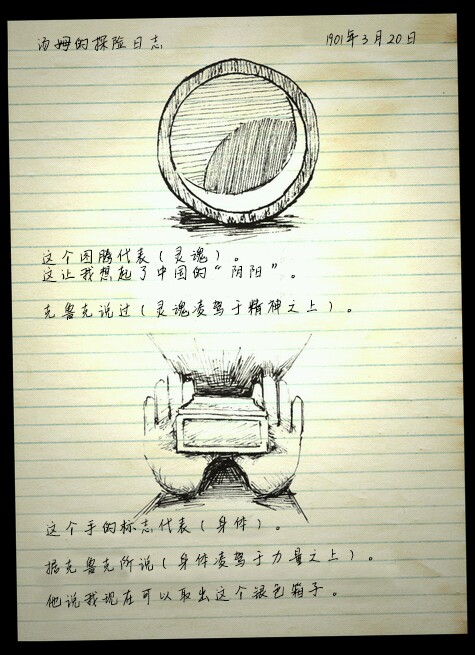 汤姆的探险日志
1901年3月20日
这个图腾代表（灵魂）。
这让我想起了中国的“阴阳”。
克鲁克说过（灵魂凌驾于精神之上）。
这个手的标志代表（身体）。
据克鲁克所说（身体凌驾于力量之上）。
他说我现在可以取出这个银色箱子。